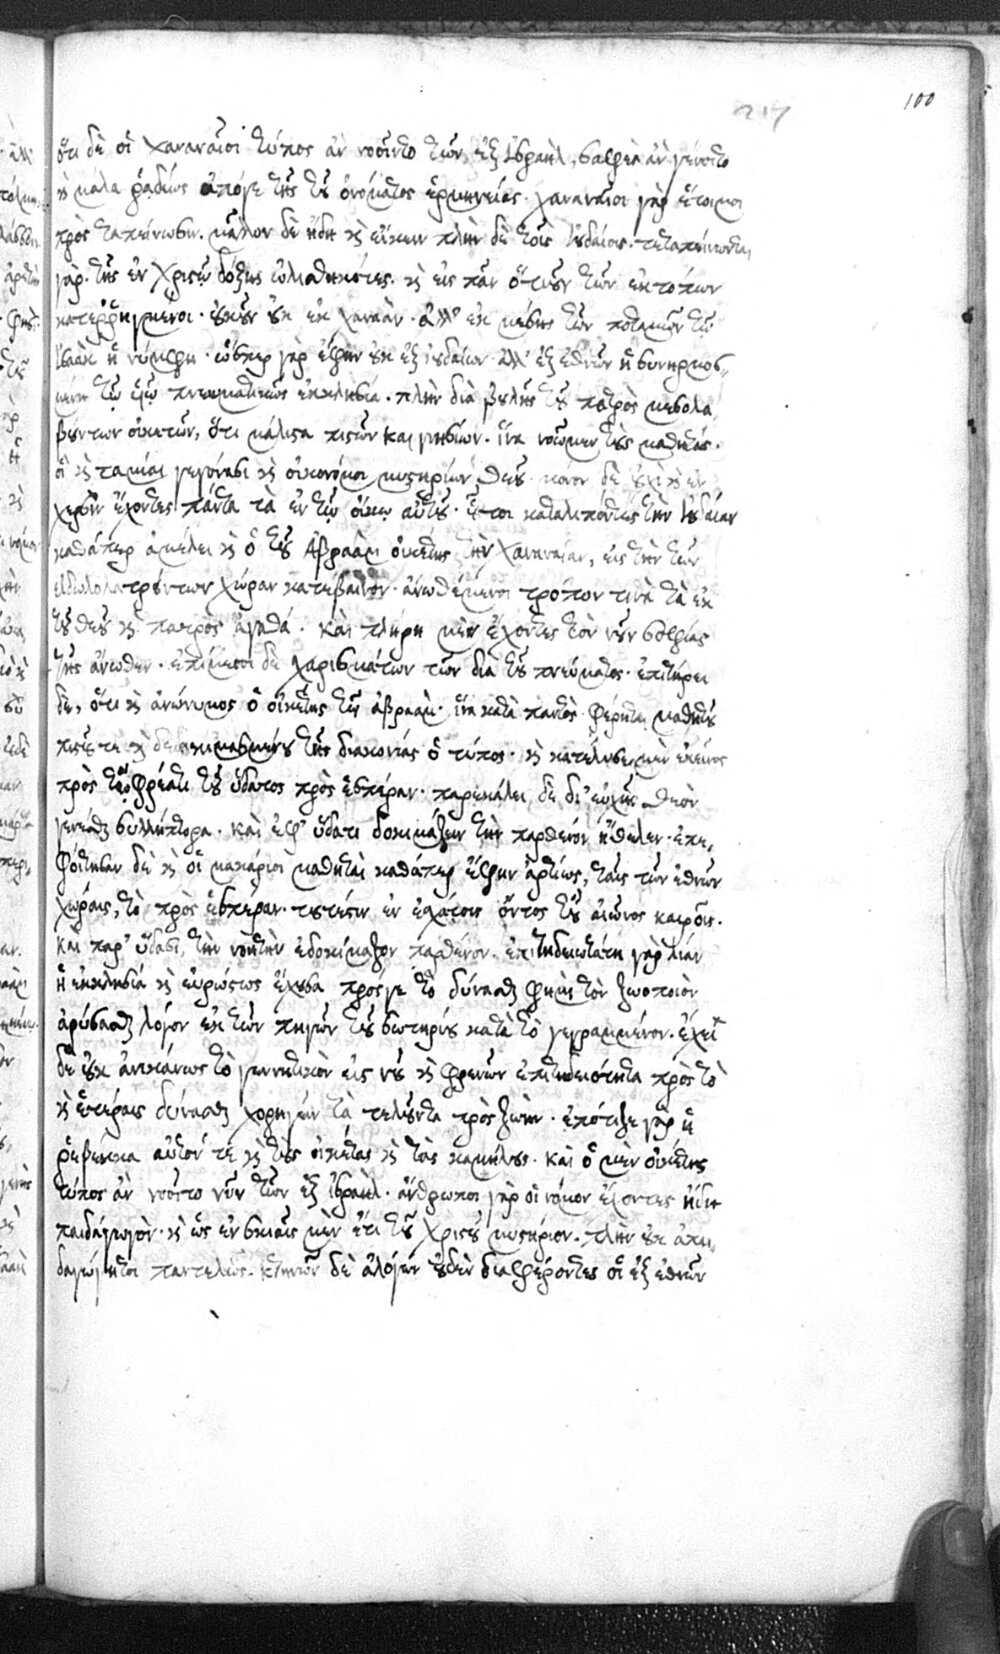 217
100
ὅτι δὲ οἱ χαναναῖοι τύπος ἂν νοοῖντο τῶν ἐξ ἰσραὴλ, σαφὲς ἂν γένοιτο
καὶ μάλα ῥαδίως ἀπόγε τῆς τοῦ ὀνόματος ἑρμηνείας. χαναναῖοι γὰρ ἕτοιμοι
πρὸς ταπείνωσιν. μᾶλλον δὲ ἤδη καὶ πλὴν δὲ τοῖς ἰουδαίοις. τεταπείνωνται
γὰρ. τῆς ἐν χριστῷ δόξης ὠλισθηκότες. καὶ εἰς πᾶν ὁτιοῦν τῶν ἐκτόπων
κατεῤῥηγμένοι. οὐκοῦν οὐκ ἐκ χαναὰν. ἀλλ' ἐκ μέσης τῶν ποταμῶν τῷ
ἰσαὰκ ἡ νύμφη. ὥσπερ γὰρ ἔφην οὐκ ἐξ ἰουδαίων ἀλλ' ἐξ ἐθνῶν ἡ συνηρμοσ-
μένη τῷ υἱῷ πνευματικῶς ἐκκλησία. πλὴν διὰ βουλῆς τοῦ πατρὸς μεσολα
βούντων οἰκετῶν, ὅτι μάλιστα πιστῶν καὶ γνησίων. ἵνα νοῶμεν τοὺς μαθητάς.
οἳ καὶ ταμίαι γεγόνασι καὶ οἰκονόμοι μυστηρίων θεοῦ. μόνον δὲ οὐχὶ καὶ ἐν
χερσὶν ἔχοντες πάντα τὰ ἐν τῷ οἴκῳ αὐτοῦ. οὗτοι καταλιπόντες τὴν ἰουδαίαν
καθάπερ ἀμέλει καὶ ὁ τοῦ ἀβραὰμ οἰκέτης τὴν χαναναίαν, εἰς τὴν τῶν
εἰδωλολατρούντων χώραν κατέβαινον. ἀνωθέμενοι τρόπον τινὰ τὰ ἐκ
τοῦ θεοῦ καὶ πατρὸς ἀγαθά. καὶ πλήρη μὲν ἔχοντες τὸν νοῦν σοφίας
τῆς ἄνωθεν. ἐπίμεστοι δὲ χαρισμάτων τῶν διὰ τοῦ πνεύματος. ἐπιτήρει
δὲ, ὅτι καὶ ἀνώνυμος ὁ οἰκέτης τοῦ ἀβραάμ. ἵνα κατὰ παντὸς φέρηται μαθητοῦ
πιστοῦ τε καὶ δεδοκιμασμένου τῆς διακονίας ὁ τύπος. καὶ κατέλυσε μὲν ἐκεῖνος
πρὸς τῷ φρέατι τοῦ ὕδατος πρὸς ἑσπέραν. παρεκάλει δὲ δι' εὐχῆς θεὸν
γενέσθαι συλλήπτορα. καὶ ἐφ' ὕδατι δοκιμάζειν τὴν παρθένον ἤθελεν. ἐπε-
φοίτησαν δὲ καὶ οἱ μακάριοι μαθηταὶ καθάπερ ἔφην ἀρτίως, ταῖς τῶν ἐθνῶν
χώραις, τὸ πρὸς ἑσπέραν. τουτέστιν ἐν ἐσχάτοις ὄντος τοῦ αἰῶνος καιροῖς.
καὶ παρ' ὕδασι, τὴν νοητὴν ἐδοκίμαζον παρθένον. ἐπιτηδειοτάτη γὰρ λίαν
ἡ ἐκκλησία καὶ εὐρώστως ἔχουσα πρόσγε τὸ δύνασθαι φημὶ τὸν ζωοποιὸν
ἀρύσασθαι λόγον ἐκ τῶν πηγῶν τοῦ σωτηρίου κατὰ τὸ γεγραμμένον. ἔχει
δὲ οὐκ ἀνικάνως τὸ γεννητικὸν εἰς νοῦ καὶ φρενῶν ἐπιτηδειότητα πρὸς τὸ
καὶ ἑτέροις δύνασθαι χορηγεῖν τὰ τελοῦντα πρὸς ζωήν. ἐπότιζε γὰρ ἡ
ῥεβέκκα αὐτόν τε καὶ τοὺς οἰκέτας καὶ τὰς καμήλους. καὶ ὁ μὲν οἰκέτης
τύπος ἂν νοοῖτο νῦν τῶν ἐξ ἰσραὴλ. ἄνθρωποι γὰρ οἱ νόμον ἔχοντες ἤδη
παιδαγωγὸν. καὶ ὡς ἐν σκιαῖς μὲν ἔτι τοῦ χριστοῦ μυστήριον. πλὴν οὐκ ἀπαι
δαγώγητοι παντελῶς. κτηνῶν δὲ ἀλόγων οὐδὲν διαφέροντες οἱ ἐξ ἐθνῶν